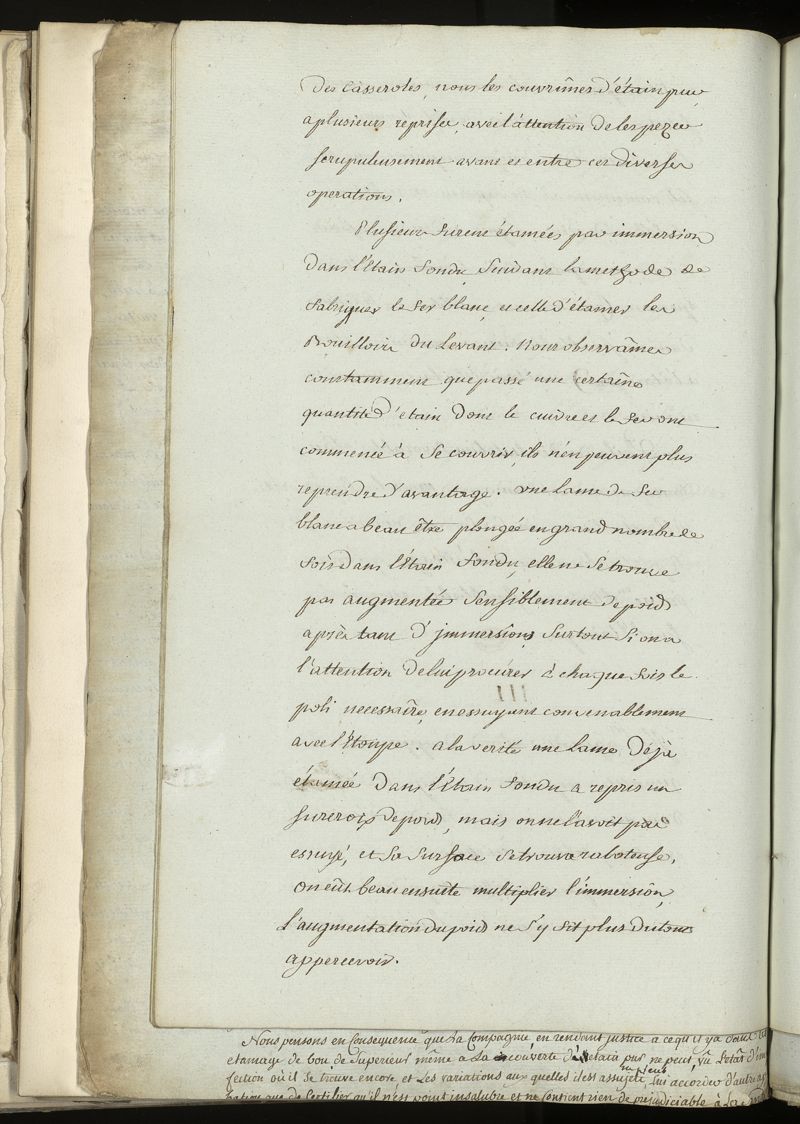 des casseroles, nous les couvrîmes d'étain pur
a plusieurs reprises, avec l'attention de les pezer
scrupuleusement avant et entre ces diverses
operations.
Plusieurs furent étamées par immersion
dans l'étain fondu, suivant la methode de
fabriquer le fer blanc, et celle d'étamer les
Bouilloirs du Levant. Nous observâmes
constamment que passé une certaine
quantité d'etain dont le cuivre et le fer ont
commencé à se couvrir, ils n'en peuvent plus
reprendre d'avantage. une lame de fer
blanc a beau être plongée en grand nombre de
fois dans l'étain fondu, elle ne se trouve
pas augmentée sensiblement de poid
après tant d'jmmersions, surtout si on a
l'attention de lui procurer à chaque fois le
poli necessaire, en essuyant convenablement
avec l'étoupe. a la verité une lame déjà
étamée dans l'étain fondu a repris un
surcroix de poid, mais on ne l'avoit pas
essuyé, et sa surface se trouva raboteuse,
on eût beau ensuite multiplier l'immersion,
l'augmentation du poid ne s'y fit plus du tout
appercevoir.
Nous pensons en Consequence que La Compagnie, en rendant justice a ce qu'il y a dans
etamage de bon, de superieur même a La decouverte de l'etain pur, ne peut, vû L'etat d'im
fection où il se trouve encore, et Les variations aux quelles il est assujeti, lui accorder d'autre ap
bation que de Certifier qu'il n'est point insalubre et ne Contient rien de prejudiciable à La